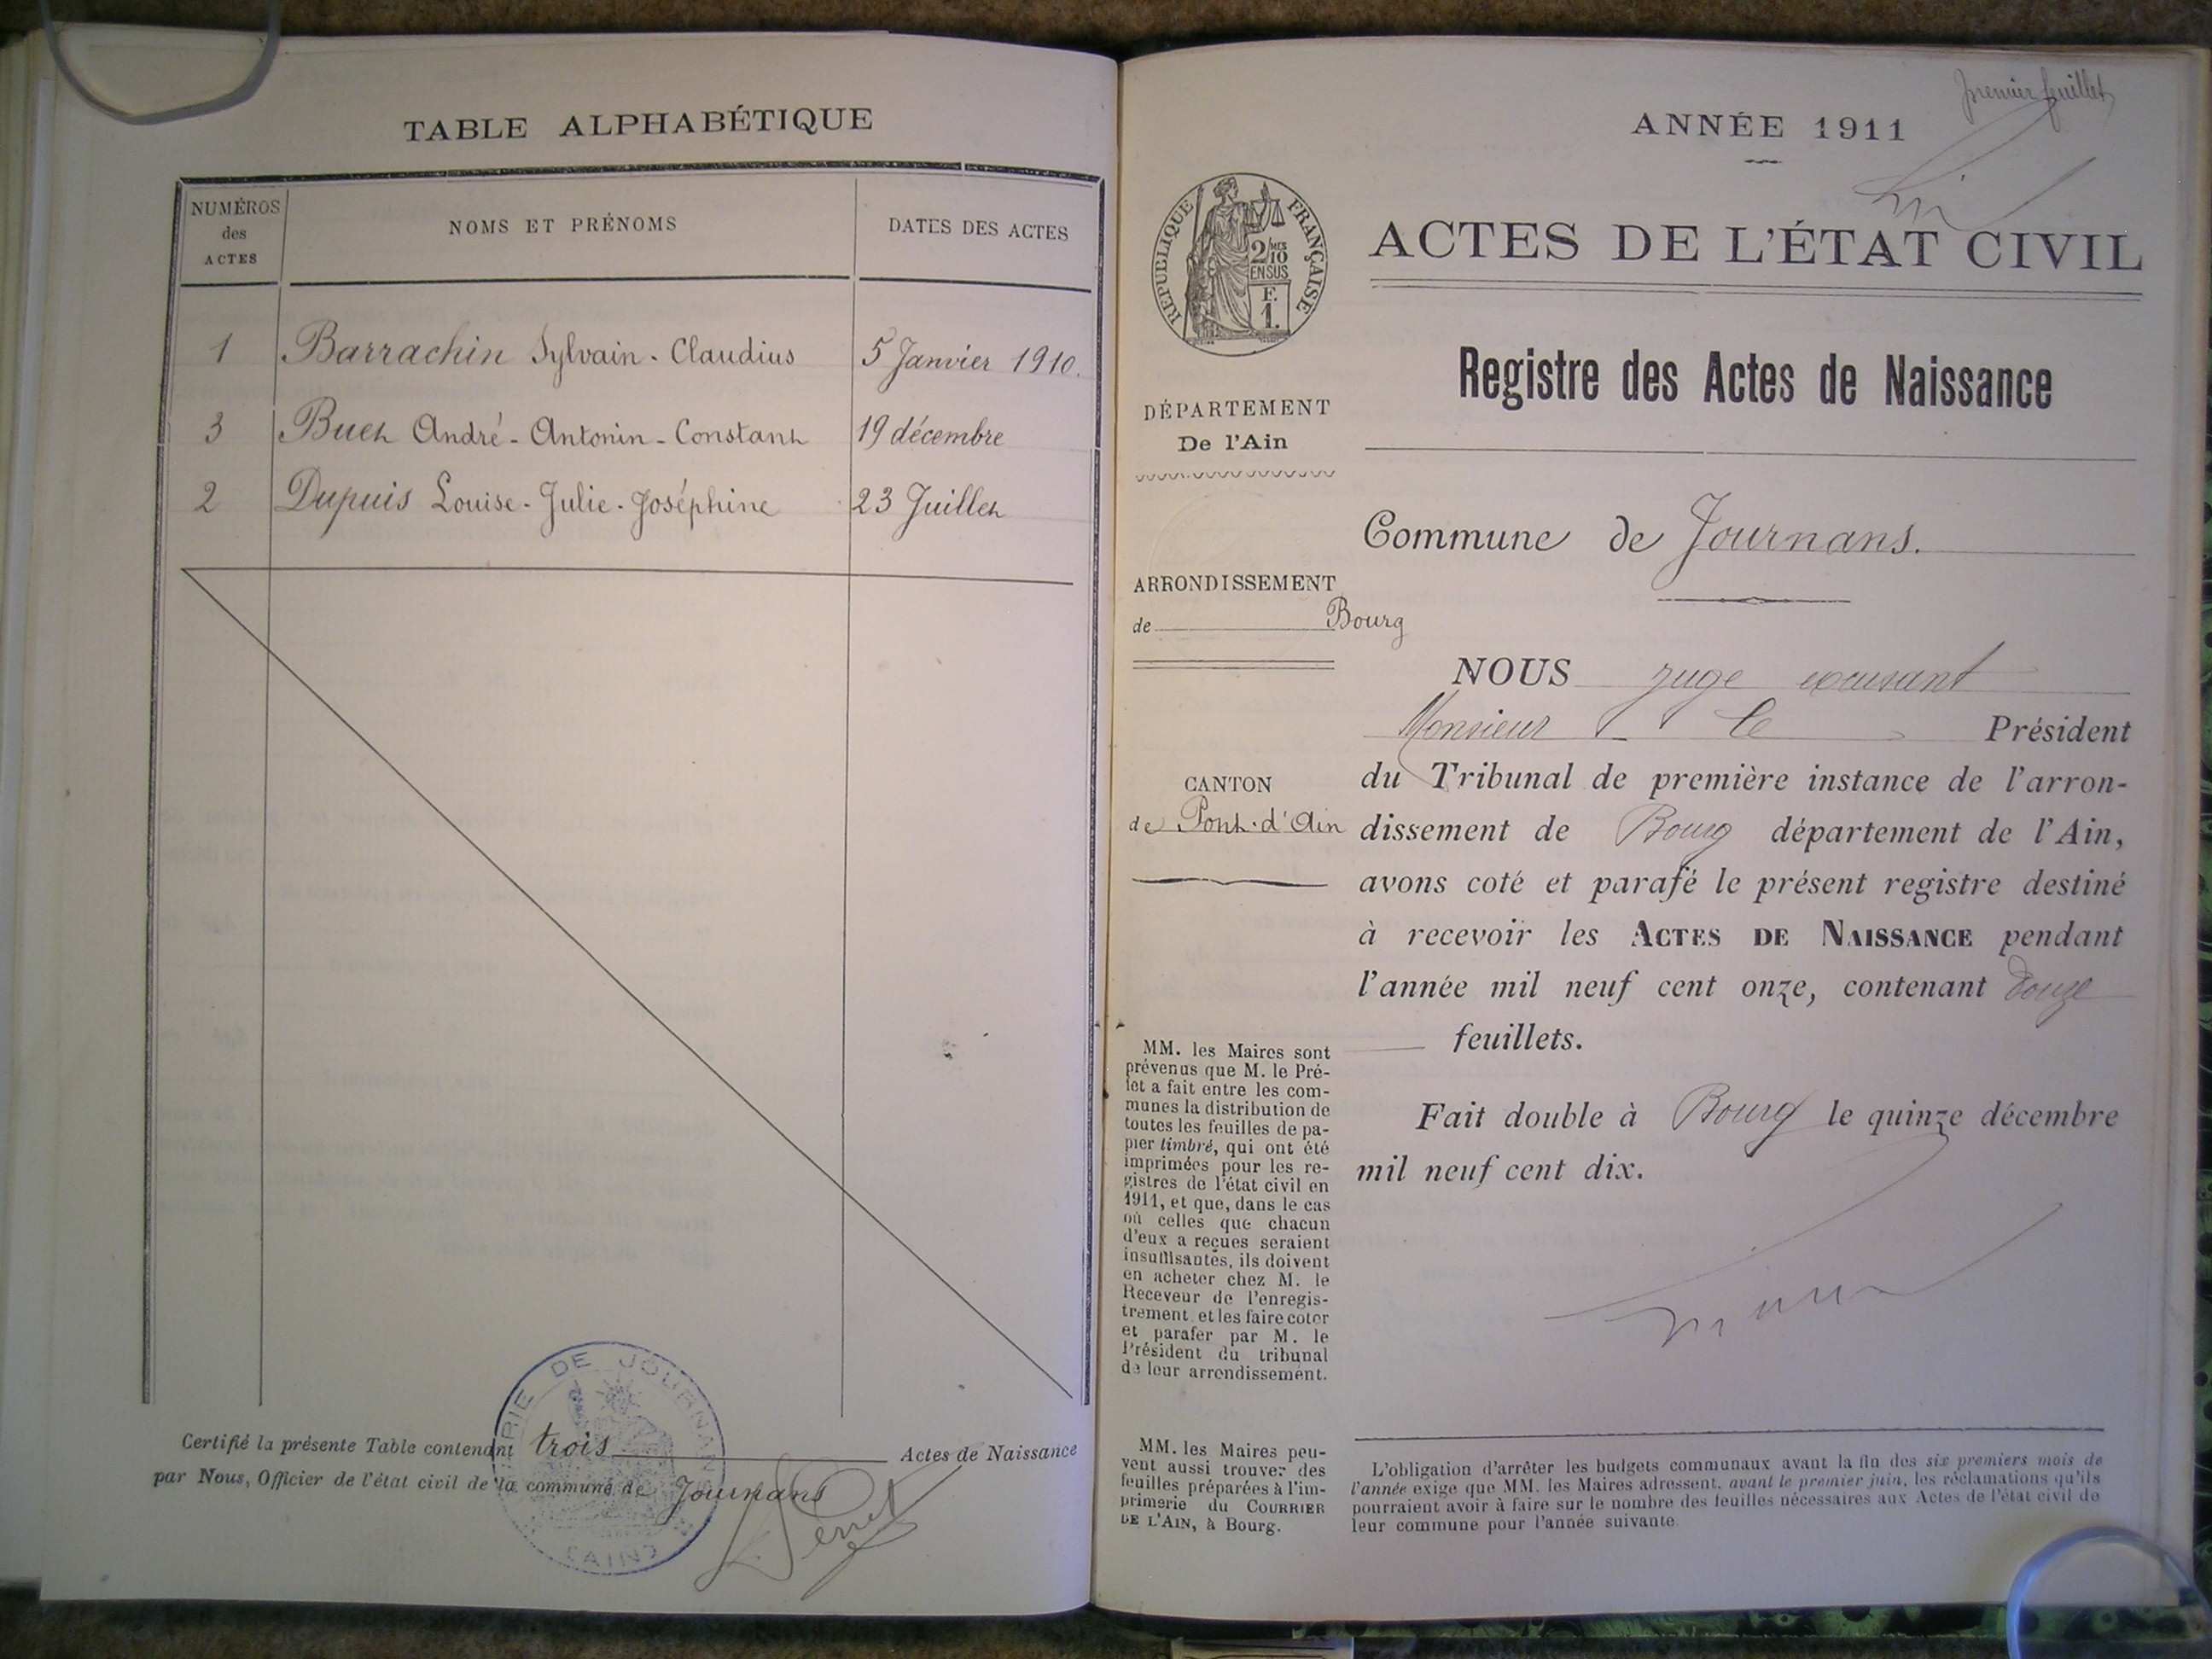 TABLE ALPHABÉTIQUE
NUMÉROS
des
ACTES
NOMS ET PRÉNOMS
DATES DES ACTES
1 Barrachin Sylvain-Claudius 5 Janvier 1910.
3 Buet André-Antonin-Constant 19 décembre
2 Dupuis Louise-Julie-Joséphine 23 Juillet
Certifié la présente Table contenant trois Actes de Naissance
par Nous, Officier de l'état civil de la commune de Journans
MAIRIE DE JOURNANS
(AIN)
L. Perret
premier feuillet
ANNÉE 1911
RÉPUBLIQUE FRANÇAISE
2/10 MES
EN SUS
F.
1.
ACTES DE L'ÉTAT CIVIL
Registre des Actes de Naissance
DÉPARTEMENT
De l'Ain
Commune de Journans.
ARRONDISSEMENT
de Bourg
CANTON
de Pont-d'Ain
NOUS juge
Monsieur le Président
du Tribunal de première instance de l'arron-
dissement de Bourg département de l'Ain,
avons coté et parafé le présent registre destiné
à recevoir les ACTES DE NAISSANCE pendant
l'année mil neuf cent onze, contenant douze
feuillets.
Fait double à Bourg le quinze décembre
mil neuf cent dix.
MM. les Maires sont
prévenus que M. le Pré-
fet a fait entre les com-
munes la distribution de
toutes les feuilles de pa-
pier timbré, qui ont été
imprimées pour les re-
gistres de l'état civil en
1911, et que, dans le cas
où celles que chacun
d'eux a reçues seraient
insuffisantes, ils doivent
en acheter chez M. le
Receveur de l'enregis-
trement et les faire coter
et parafer par M. le
Président du tribunal
de leur arrondissement.
MM. les Maires peu-
vent aussi trouver des
feuilles préparées à l'im-
primerie du COURRIER
DE L'AIN, à Bourg.
L'obligation d'arrêter les budgets communaux avant la fin des six premiers mois de
l'année exige que MM. les Maires adressent, avant le premier juin, les réclamations qu'ils
pourraient avoir à faire sur le nombre des feuilles nécessaires aux Actes de l'état civil de
leur commune pour l'année suivante.